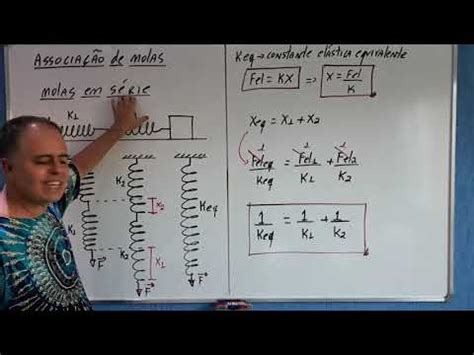 ASSOCIAÇÃO DE MOLAS
MOLAS EM SÉRIE
K1
K1
K2
K2
K2
X2
X1
Keq
F
F
F
Keq → constante elástica equivalente
Fel = KX ⇒ X = Fel / K
Xeq = X1 + X2
Feleq / Keq = Fel1 / K1 + Fel2 / K2
1 / Keq = 1 / K1 + 1 / K2